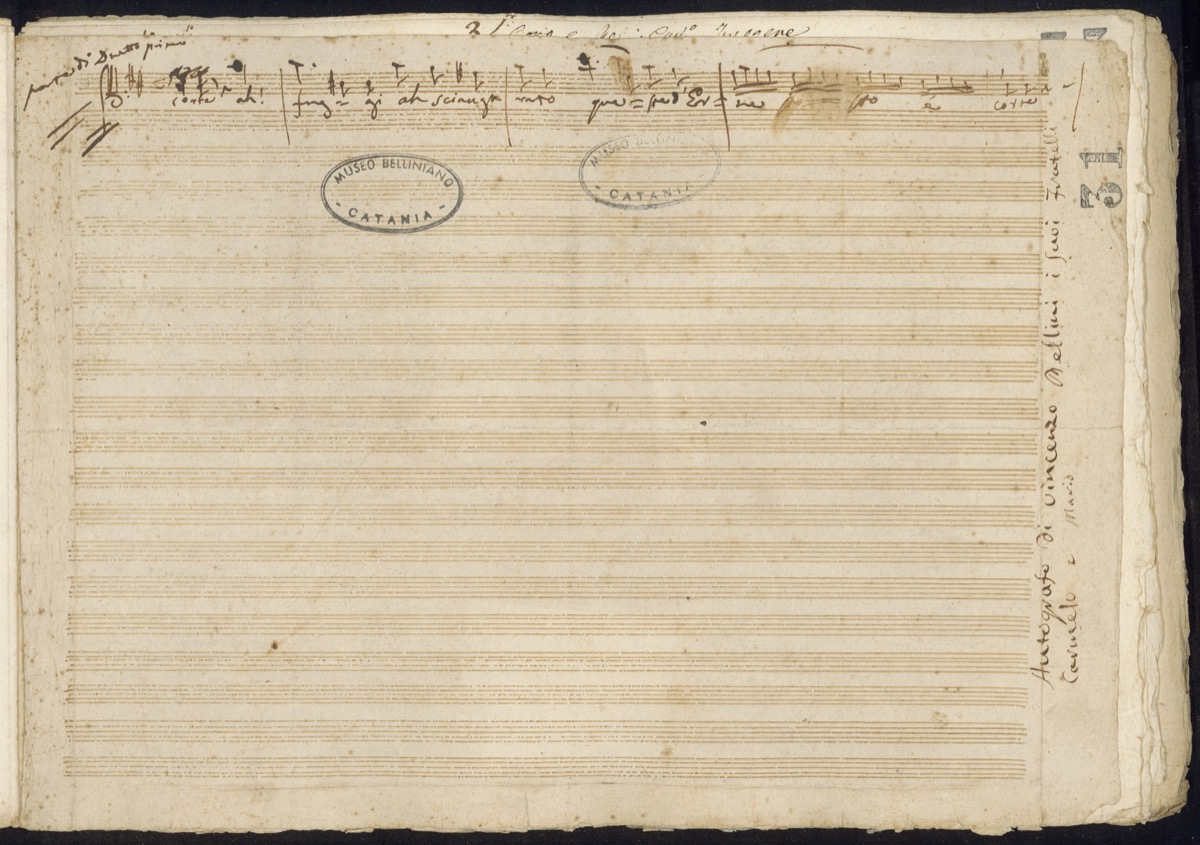 parte di Duetto "primo"
Imogene
corte ah!
fug = gi ah sciaugu rato que = sto d'Er = ne è corte
MUSEO BELLINIANO
- CATANIA -
MUSEO BELLINIANO
- CATANIA -
31
Autografo di Vincenzo Bellini i suoi Fratelli
Carmelo e Mario